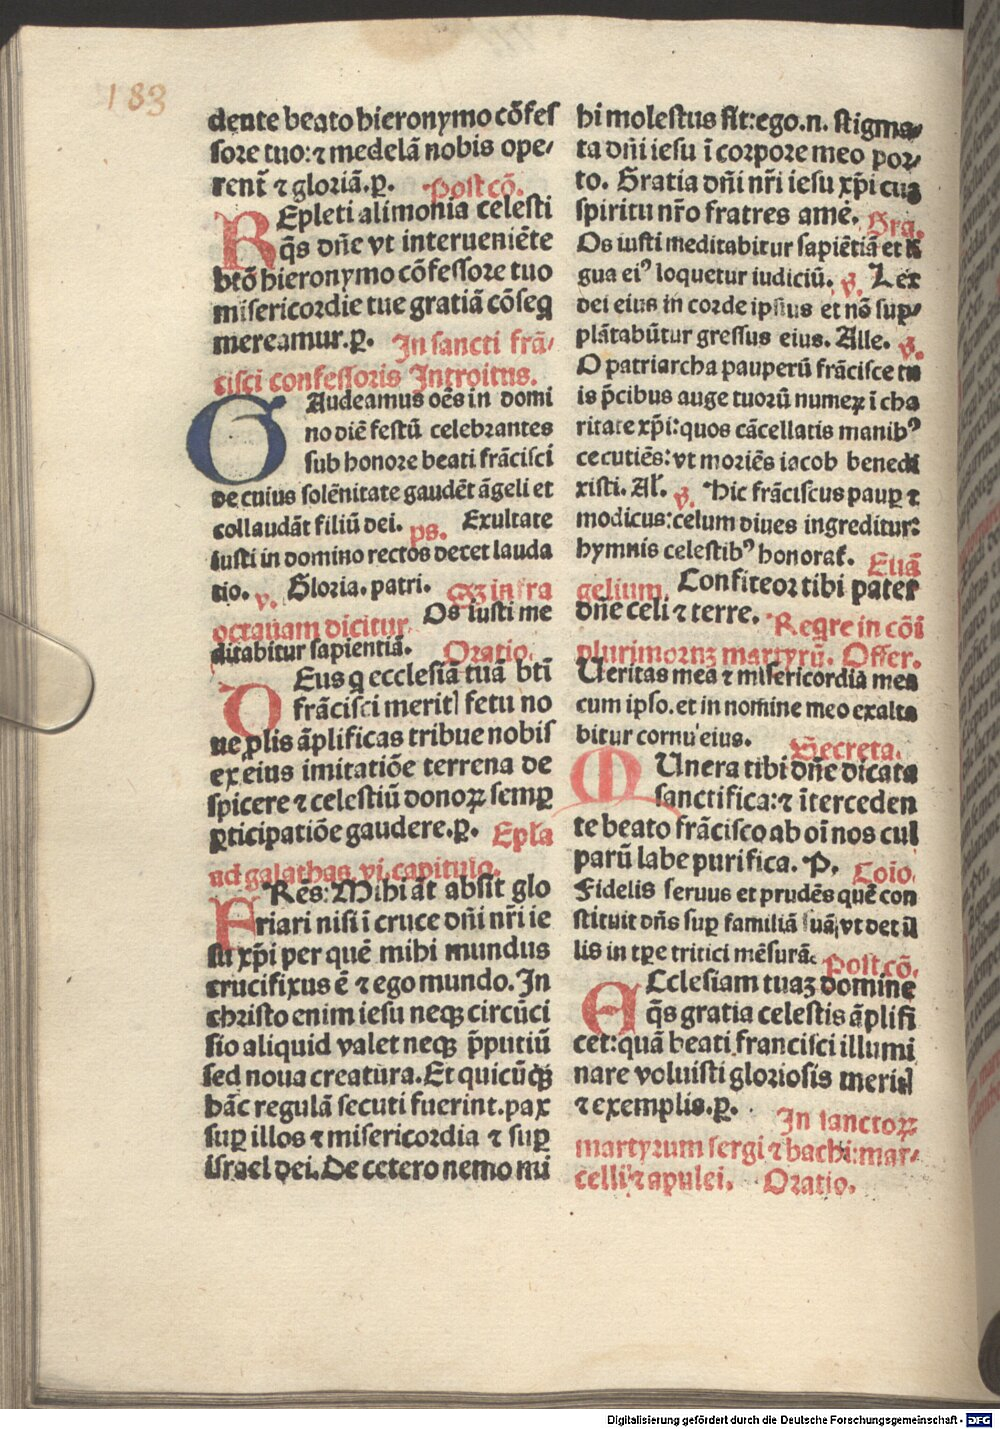 183
dente beato hieronymo cõfeſ
ſore tuo: ⁊ medelã nobis ope⸗
rent̃ ⁊ gloriã.p. Poſt cõ.
REpleti alimonia celeſti
q̃s dñe vt interueniẽte
btõ hieronymo cõfeſſore tuo
miſericordie tue gratiã cõſeq
mereamur.p. In ſancti frã⸗
ciſci confeſſoris Introitus.
GAudeamus oẽs in domi
no diẽ feſtũ celebrantes
ſub honore beati frãciſci
de cuius ſolẽnitate gaudẽt ãgeli et
collaudãt filiũ dei. ps. Exultate
iuſti in domino rectos decet lauda
tio. v. Gloria. patri. Sꝫ infra
octauam dicitur. Os iuſti me
ditabitur ſapientiã. Oratio.
DEus q eccleſiã tuã bt̃i
frãciſci merit⸝ fetu no
ue ꝓlis ãplificas tribue nobiſ
ex eius imitatiõe terrena de
ſpicere ⁊ celeſtiũ donoꝝ ſemꝑ
ꝑticipatiõe gaudere.p. Epl̃a
ad galathas. vi. capitulo.
FRẽs: Mihi ãt abſit glo
riari niſi ĩ cruce dñi nr̃i ie
ſu xp̃i per quẽ mihi mundus
crucifixus ẽ ⁊ ego mundo. In
chriſto enim ieſu neqꝫ circũci
ſio aliquid valet neqꝫ p̃putiũ
ſed noua creatura. Et quicũqꝫ
hãc regulã ſecuti fuerint. pax
ſuꝑ illos ⁊ miſericordia ⁊ ſuꝑ
iſrael dei. De cetero nemo mi
hi moleſtus ſit: ego.n. ſtigma⸗
ta dñi ieſu ĩ corpore meo por⸗
to. Gratia dñi nr̃i ieſu xp̃i cuꝫ
ſpiritu nr̃o fratres amẽ. Gra.
Os iuſti meditabitur ſapiẽtiã et lĩ
gua eiꝰ loquetur iudiciũ. v̓. Lex
dei eius in corde ipſius et nõ ſup⸗
plãtabũtur greſſus eius. Alle. v̓.
O patriarcha pauperũ frãciſce tu
is p̃cibus auge tuorũ numeꝝ ĩ cha
ritate xp̃i: quos cãcellatis manibꝰ
cecutiẽs: vt moriẽs iacob benedi
xiſti. Al̃. v̓. Hic frãciſcus pauꝑ ⁊
modicus: celum diues ingreditur:
hymnis celeſtibꝰ honorat̃. Euã
gelium. Confiteor tibi pater
dñe celi ⁊ terre. Reqre in cõi
plurimoruꝫ martyrũ. Offer.
Ueritas mea ⁊ miſericordia mea
cum ipſo. et in nomine meo exalta
bitur cornu eius. Secreta.
MUnera tibi dñe dicata
ſanctifica: ⁊ ĩterceden
te beato frãciſco ab oĩ nos cul
parũ labe purifica. P. Cõio.
Fidelis ſeruus et prudẽs quẽ con
ſtituit dñs ſuꝑ familiã ſuã, vt det il̃
lis in tꝑe tritici mẽſurã. Poſt cõ.
ECcleſiam tuaꝫ domine
q̃s gratia celeſtis ãplifi
cet: quã beati franciſci illumi
nare voluiſti glorioſis merit⸝
⁊ exemplis.p. In ſanctoꝝ
martyrum ſergi ⁊ bachi: mar⸗
celli ⁊ apulei. Oratio.
Digitalisierung gefördert durch die Deutsche Forschungsgemeinschaft - DFG